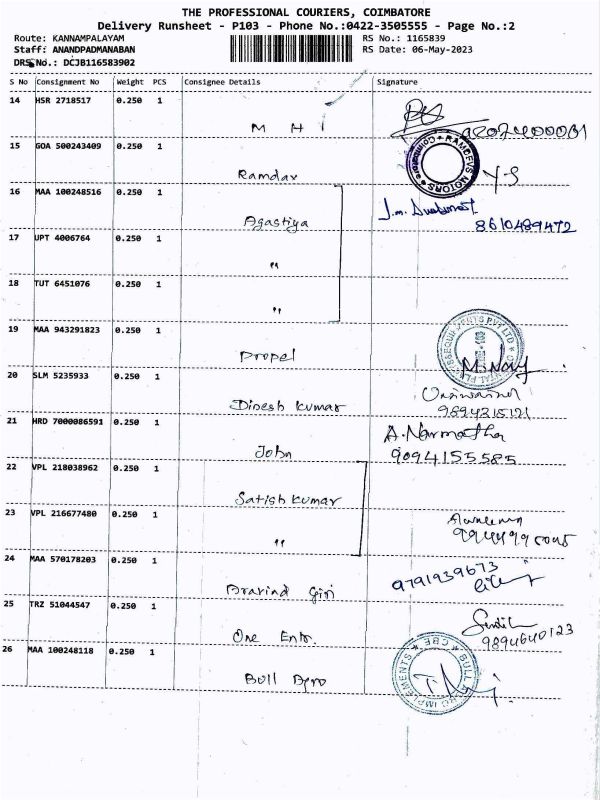 THE PROFESSIONAL COURIERS, COIMBATORE
Delivery Runsheet - P103 - Phone No.:0422-3505555 - Page No.:2
Route: KANNAMPALAYAM RS No.: 1165839
Staff: ANANDPADMANABAN RS Date: 06-May-2023
DRS No.: DCJB116583902
S No Consignment No Weight PCS Consignee Details Signature
14 HSR 2718517 0.250 1
M H I
15 GOA 500243409 0.250 1
RAMDEVS MOTORS
Ramdav Y-S
16 MAA 100248516 0.250 1
Agastiya 8610489472
17 UPT 4006764 0.250 1
"
18 TUT 6451076 0.250 1
"
19 MAA 943291823 0.250 1
Propel
20 SLM 5235933 0.250 1
Dinesh kumar 9894215121
21 HRD 7000086591 0.250 1 A. Narmatha
John 9094155585
22 VPL 218038962 0.250 1
Satish kumar
23 VPL 216677480 0.250 1
"
24 MAA 570178203 0.250 1 9791939673
Aravind Giri
25 TRZ 51044547 0.250 1
One Entr. 9894640123
26 MAA 100248118 0.250 1
BULL AGRO IMPLEMENTS CBE
Bull Agro